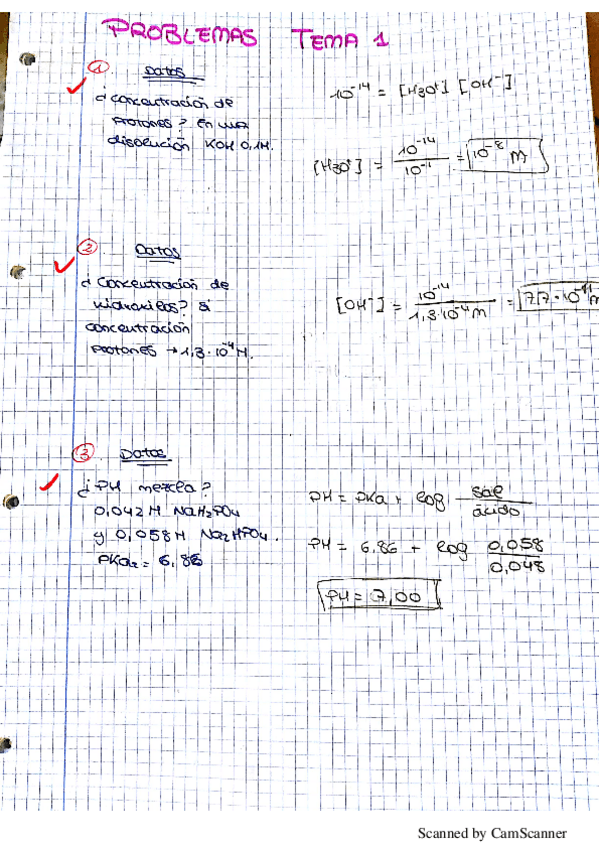 PROBLEMAS TEMA 1
1 Datos
¿Concentración de
protones? En una
disolución KOH 0,1M.
10⁻¹⁴ = [H3O⁺] [OH⁻]
[H3O⁺] = 10⁻¹⁴ / 10⁻¹ = 10⁻⁸ M
2 Datos
¿Concentración de
hidroxilos? si
concentración
protones → 1,3·10⁻⁴ M.
[OH⁻] = 10⁻¹⁴ / 1,3·10⁻⁴ M = 7,7·10⁻¹¹ M
3 Datos
¿PH mezcla?
0,042 M NaH₂PO₄
y 0,058 M Na₂HPO₄.
PKa₂ = 6,86
PH = PKa + log sal / ácido
PH = 6,86 + log 0,058 / 0,048
PH = 7,00
Scanned by CamScanner